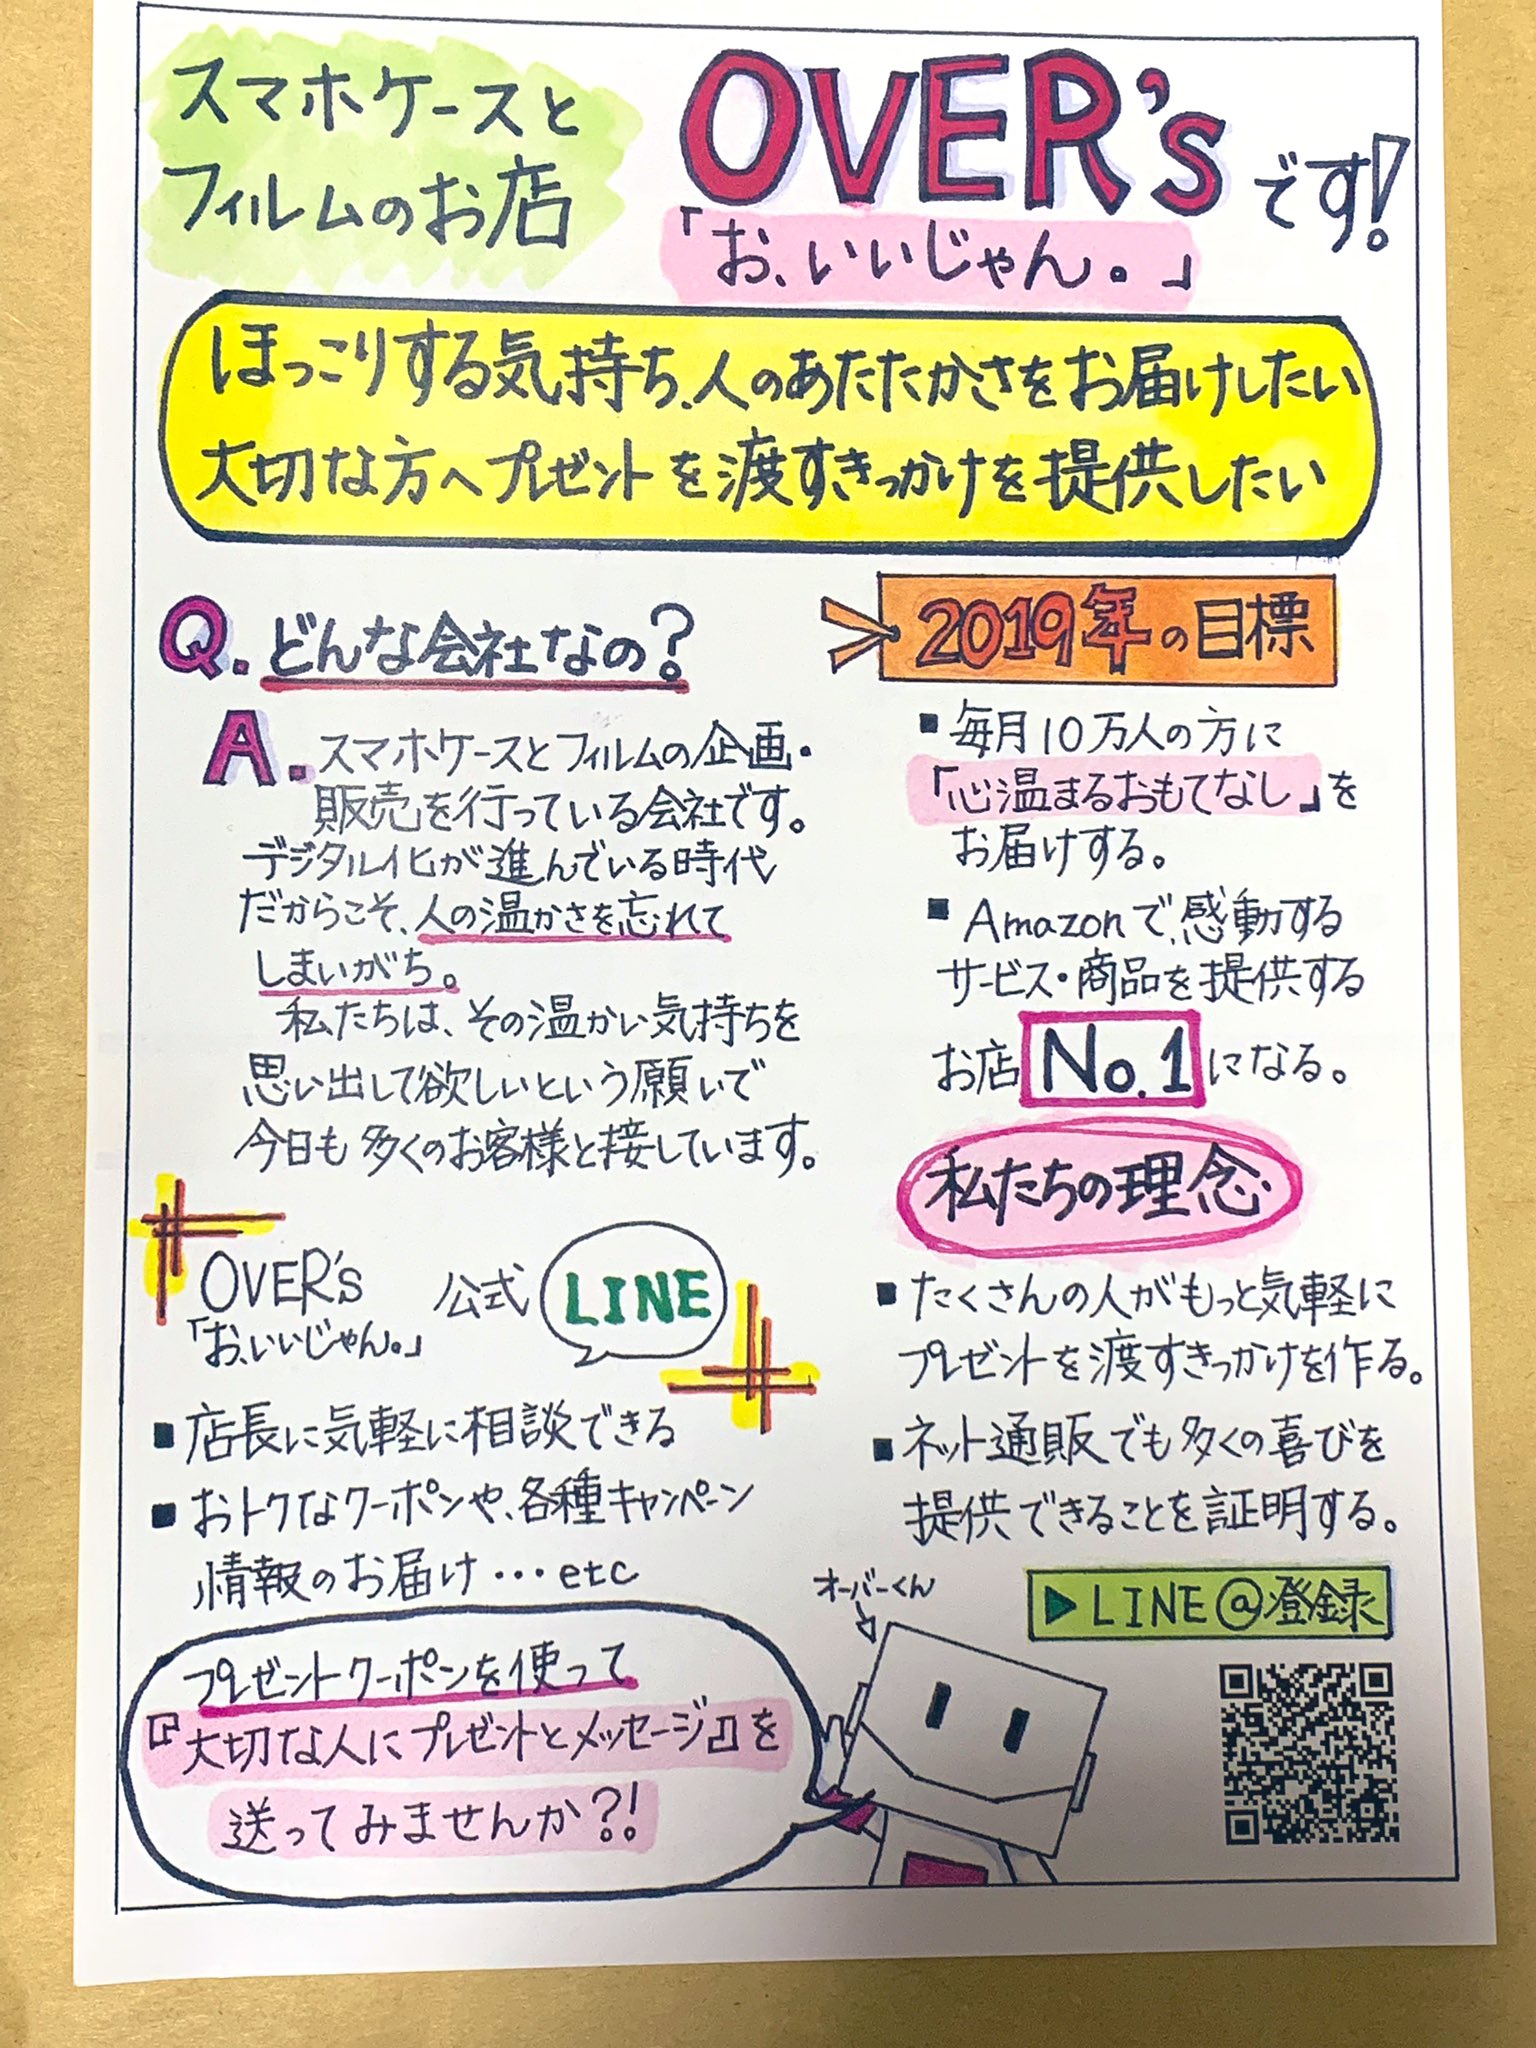 スマホケースと
フィルムのお店
OVER'sです!
「お、いいじゃん。」
ほっこりする気持ち、人のあたたかさをお届けしたい
大切な方へプレゼントを渡すきっかけを提供したい
Q.どんな会社なの?
A.スマホケースとフィルムの企画・
販売を行っている会社です。
デジタル化が進んでいる時代
だからこそ、人の温かさを忘れて
しまいがち。
私たちは、その温かい気持ちを
思い出して欲しいという願いで
今日も多くのお客様と接しています。
2019年の目標
■毎月10万人の方に
「心温まるおもてなし」を
お届けする。
■Amazonで、感動する
サービス・商品を提供する
お店No.1になる。
私たちの理念
■たくさんの人がもっと気軽に
プレゼントを渡すきっかけを作る。
■ネット通販でも多くの喜びを
提供できることを証明する。
OVER's 公式 LINE
「お、いいじゃん。」
■店長に気軽に相談できる
■おトクなクーポンや、各種キャンペーン
情報のお届け…etc
プレゼントクーポンを使って
『大切な人にプレゼントとメッセージ』を
送ってみませんか?!
オーバーくん
▶LINE@登録